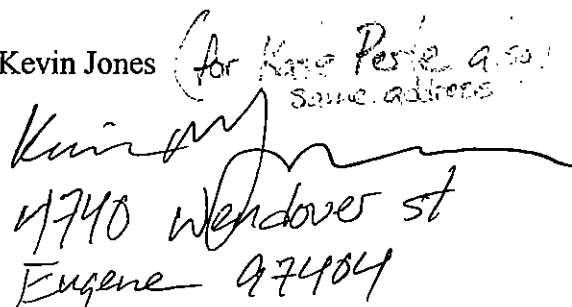 Kevin Jones (for Perle also,
same address
4740 Wendover st
Eugene 97404